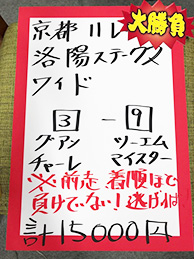 大勝負
京都11R
洛陽ステークス
ワイド
3 - 9
グアン ツーエム
チャーレ マイスター
※前走 着順ほど
負けていない!逃げれば
計15000円